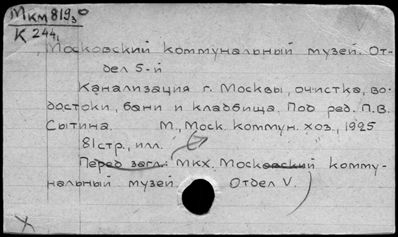 Мкм 819з0
К 244,
Московский коммунальный музей. От-
дел 5-й
Канализация г. Москвы, очистка, во-
достоки, бани и кладбища. Под ред. П.В.
Сытина. М., Моск. коммун. хоз., 1925
81 стр., илл.
Перед загл.: МКХ. Московский комму-
нальный музей. Отдел V.